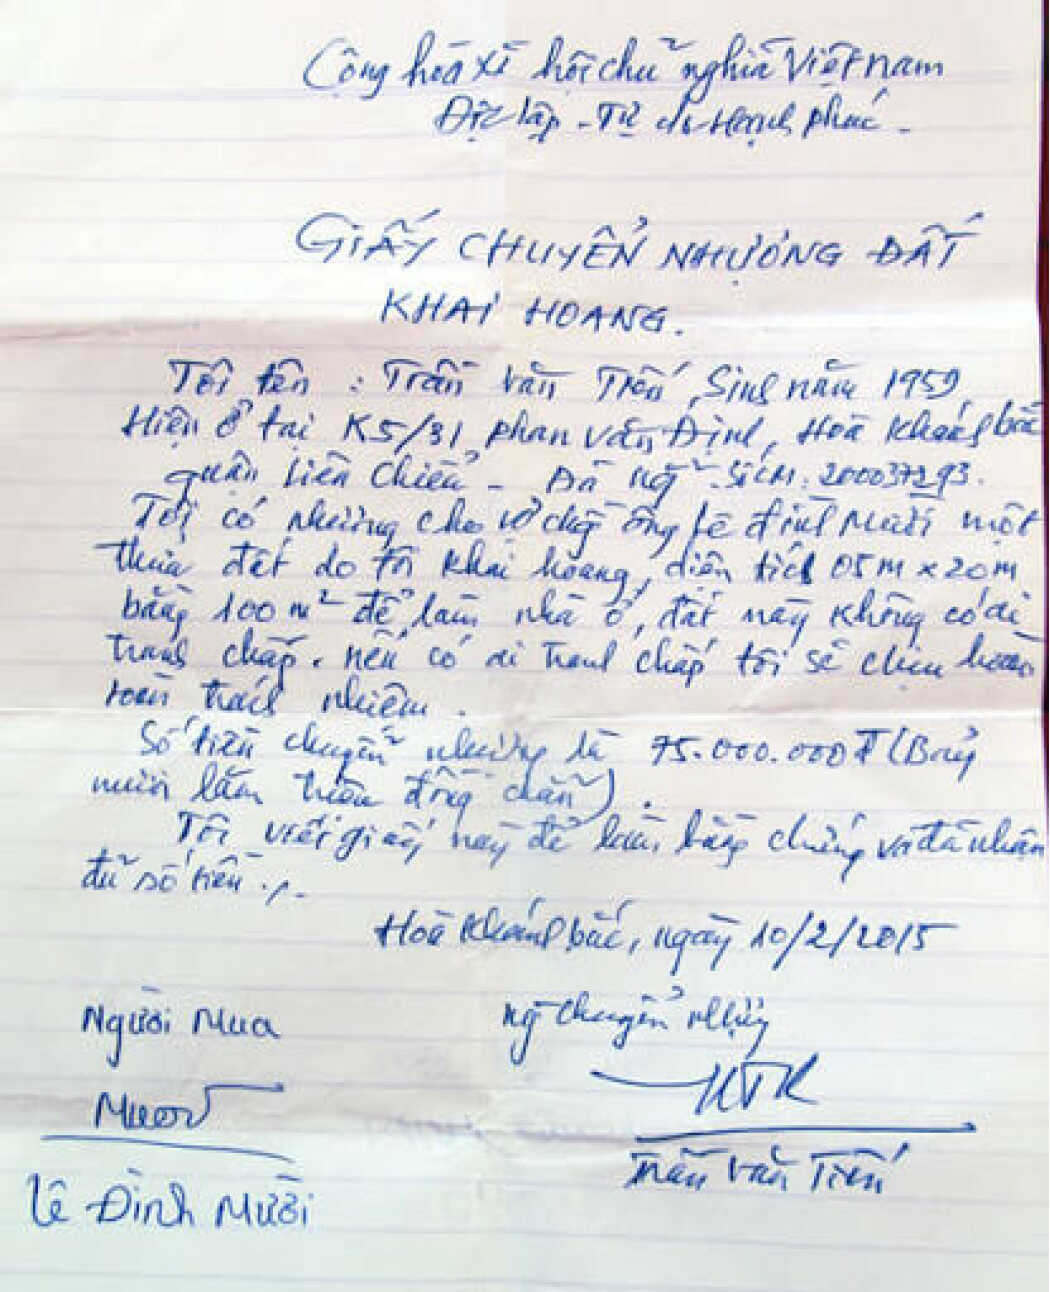 Cộng hoà xã hội chủ nghĩa Việt nam
Độc lập - Tự do Hạnh phúc -
GIẤY CHUYỂN NHƯỢNG ĐẤT
KHAI HOANG.
Tôi tên : Trần văn Tiến, Sinh năm 1959,
Hiện ở tại K5/31 phan văn Định, Hoà Khánh bắc
quận Liên Chiểu - Đà nẵng - Số CM: 200037293.
Tôi có nhường cho vợ chồng ông Lê đình Mười một
thửa đất do tôi khai hoang, diện tích 05m x 20m
bằng 100m² để làm nhà ở, đất này không có ai
tranh chấp. nếu có ai tranh chấp tôi sẽ chịu hoàn
toàn trách nhiệm.
Số tiền chuyển nhường là 75.000.000đ (Bảy
mươi lăm triệu đồng chẵn).
Tôi viết giấy này để làm bằng chứng và đã nhận
đủ số tiền ./.
Hoà Khánh bắc, ngày 10/2/2015
Người Mua
ng chuyển nhượng
Mười
Trần Văn Tiến
Lê Đình Mười